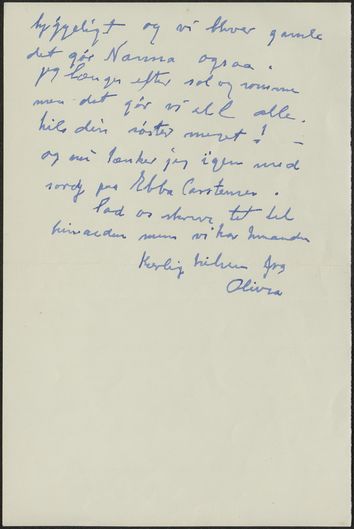 hyggeligt og vi bliver gamle
det gør Nanna ogsaa.
jeg længes efter sol og somme
men det gør vi ell alle.
hils din søster meget! –
og nu tænker jeg igen med
sorg paa Ebba Carstensen.
Lad os skrive tit til
hinanden mens vi har hinanden
Kærlig hilsen fra
Olivia